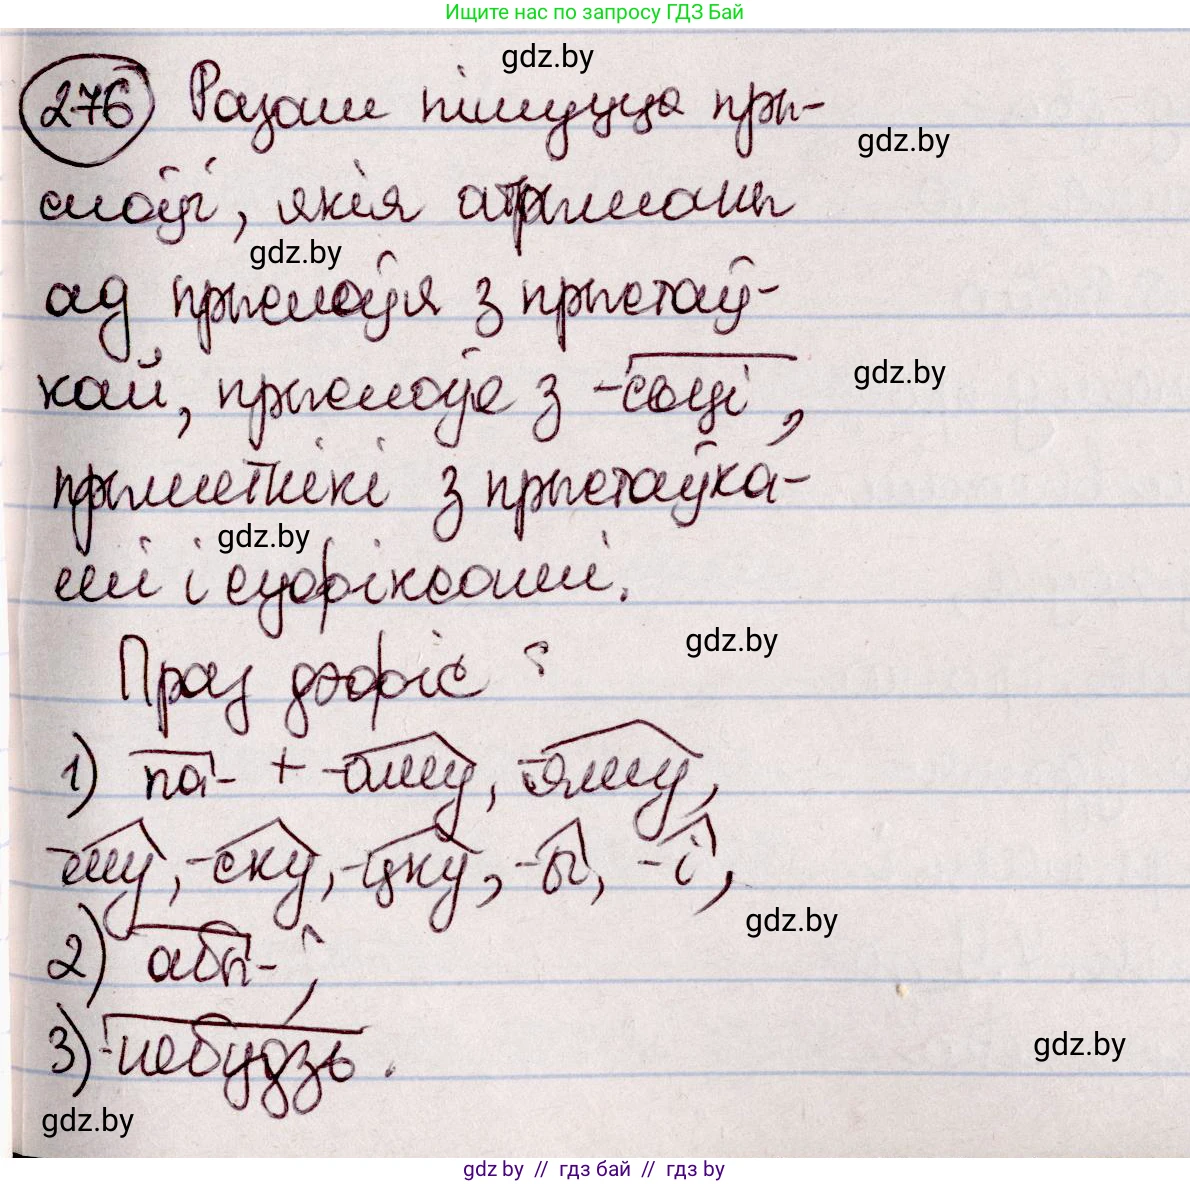 Ищите нас по запросу ГДЗ Бай
gdz.by
276 Разам пішуцца пры-
gdz.by
слоўі, якія атрыманы
gdz.by
ад прыслоўя з прыстаў-
кай, прыслоўе з -сьці,
gdz.by
прыметнікі з прыстаўка-
gdz.by
мі і суфіксамі.
gdz.by
Праз дэфіс :
1) па- + -аму, -яму,
-му, -ску, -цку, -ы, -і,
gdz.by
2) абы- ;
3) -небудзь.
gdz.by
gdz.by
gdz.by // гдз бай // гдз by